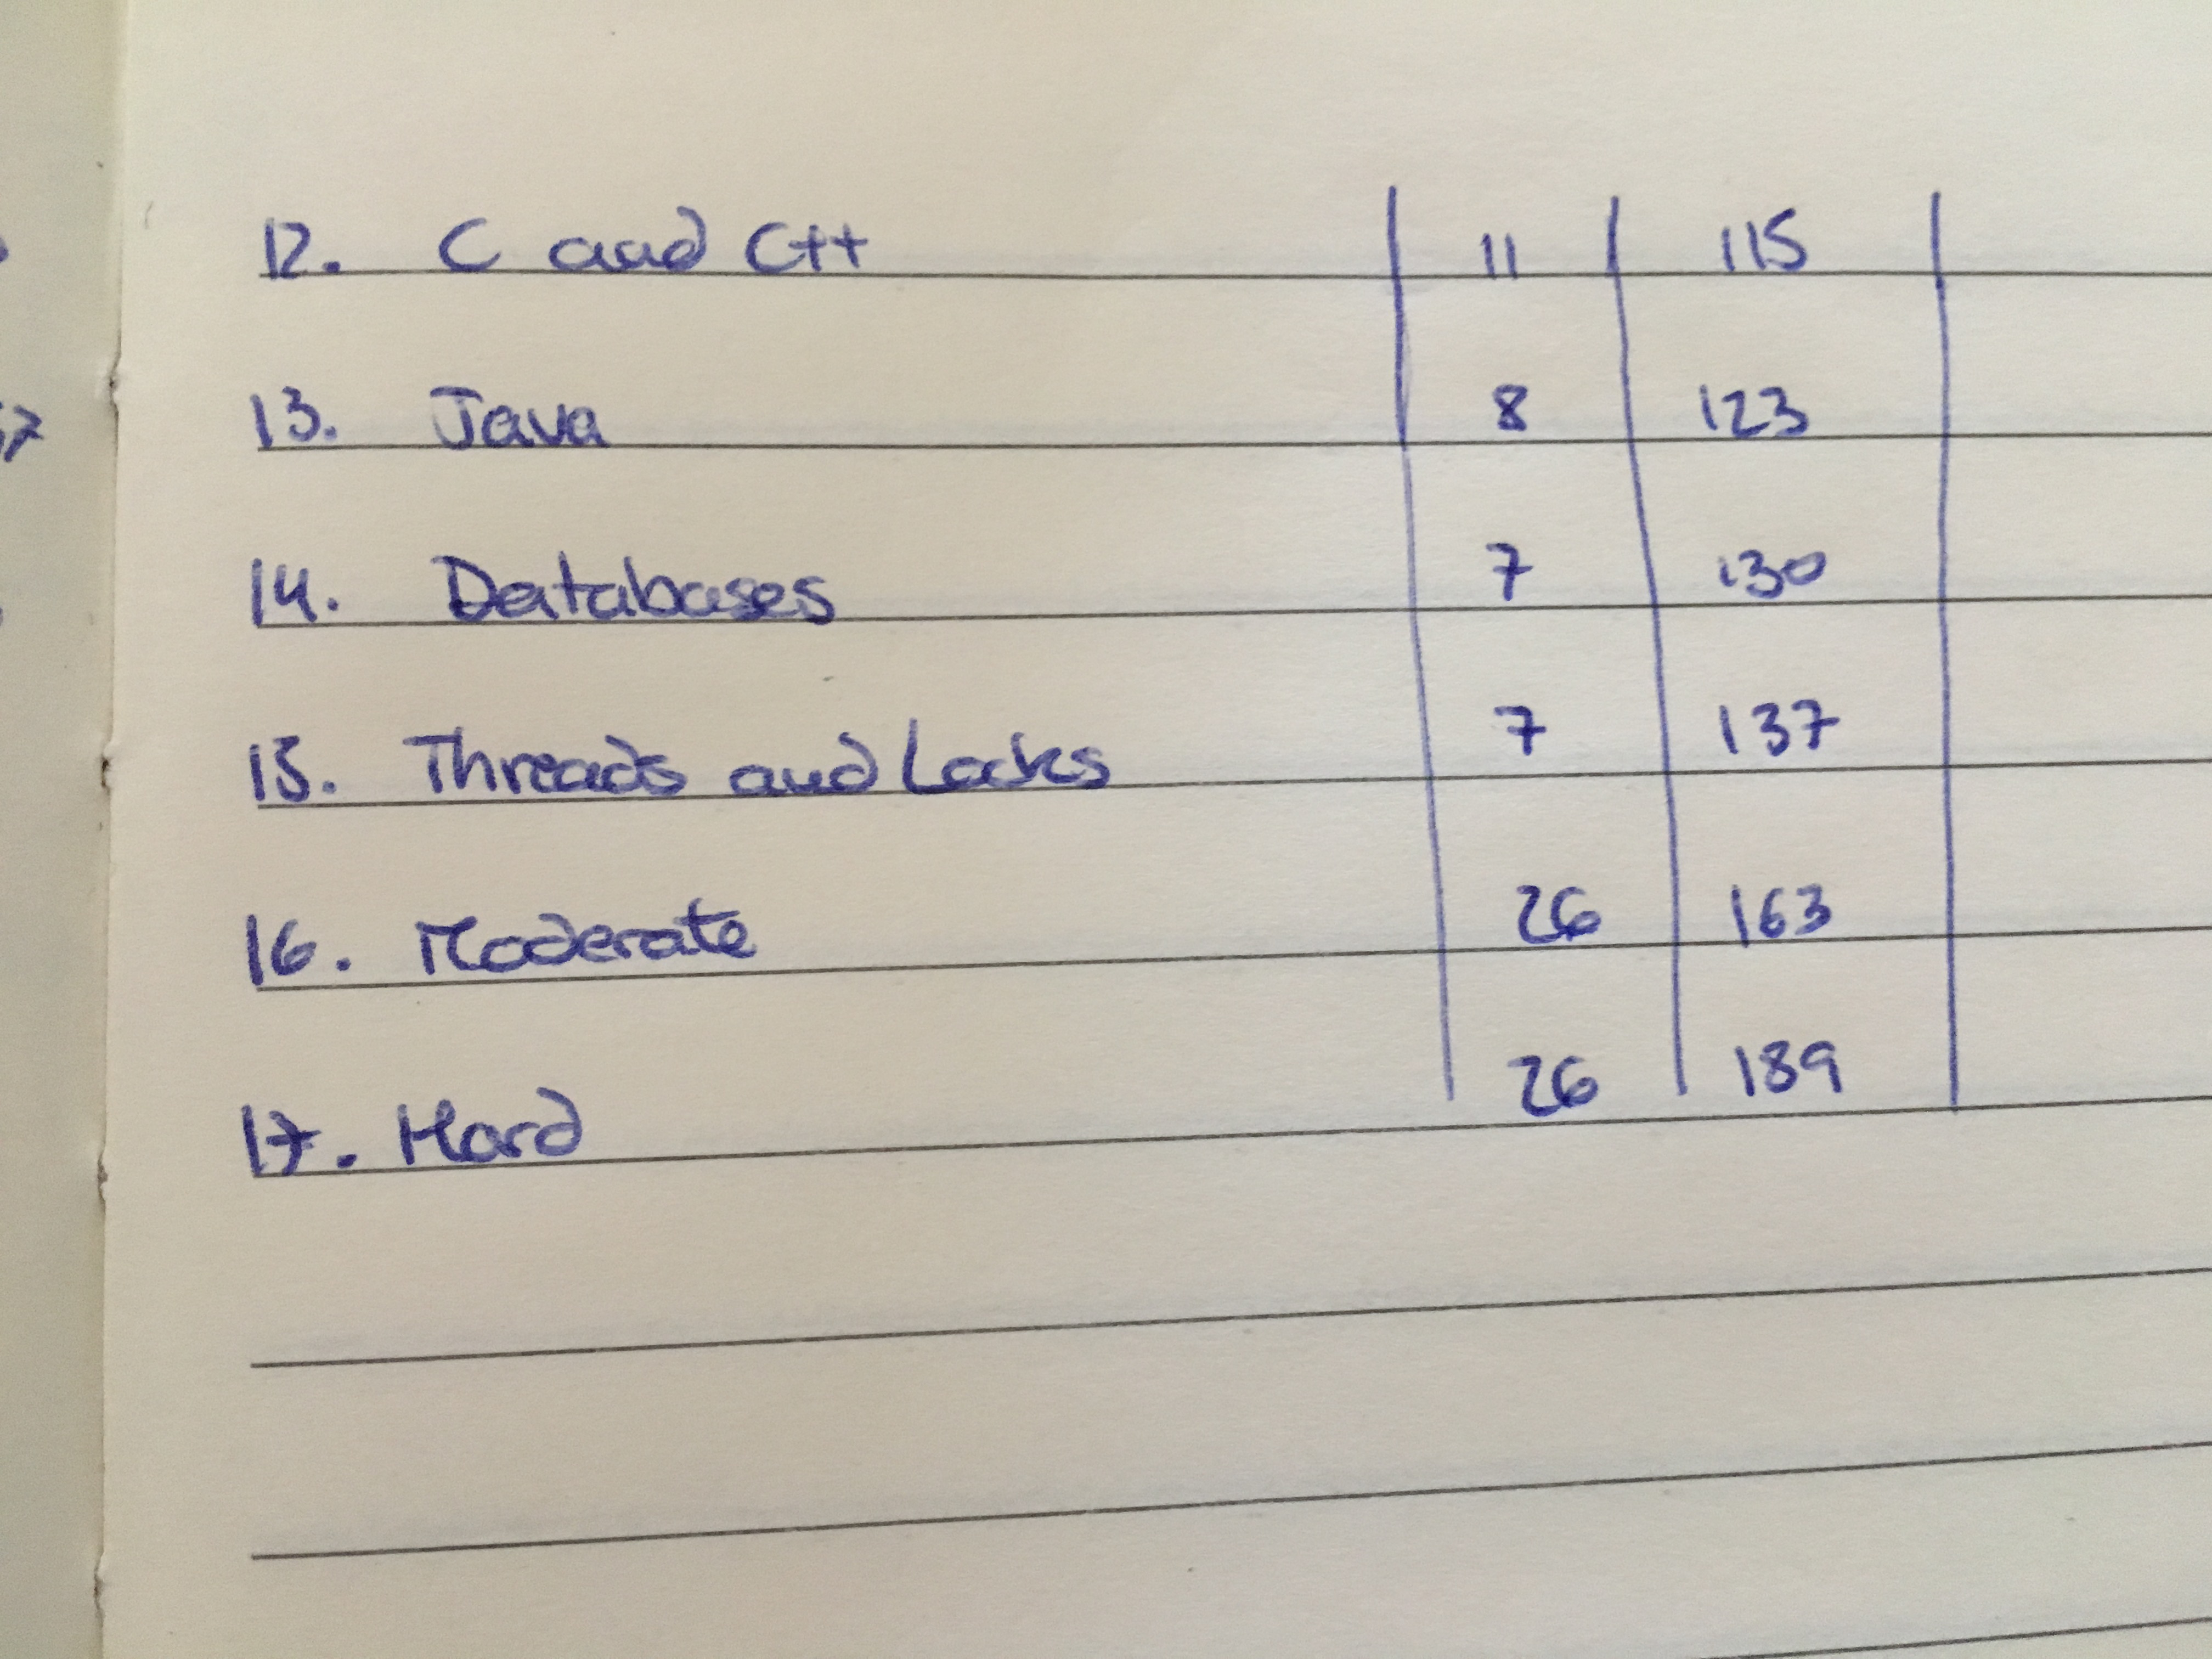 12. C and C++ 11 115
13. Java 8 123
14. Databases 7 130
15. Threads and Locks 7 137
16. Moderate 26 163
17. Hard 26 189